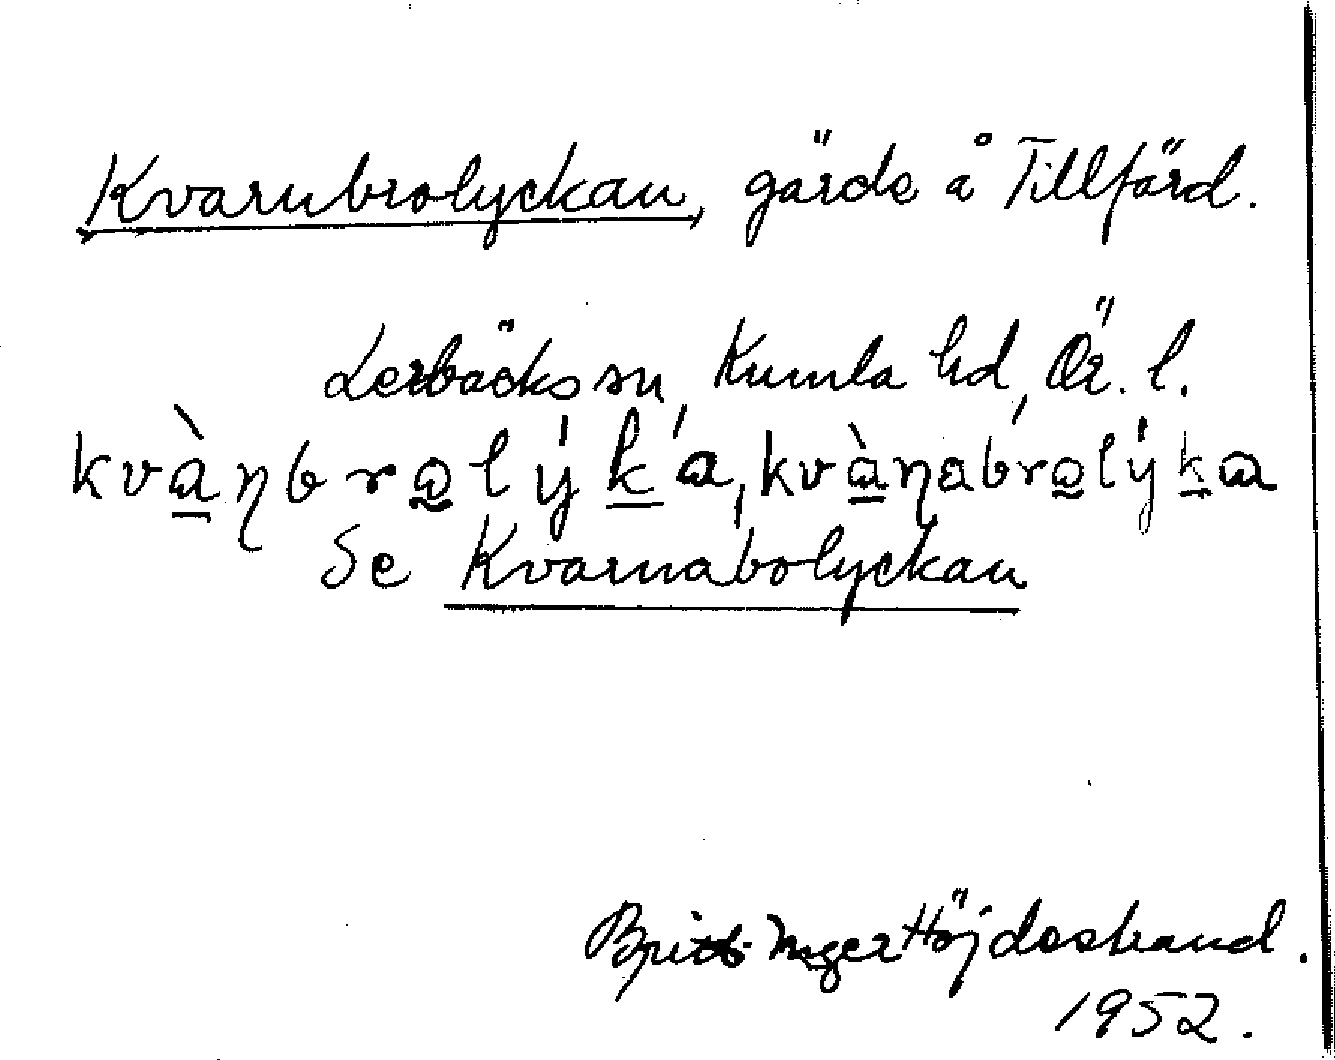 Kvarnbrolyckan, gärde å Tillfärd.
Lerbäcks sn, Kumla hd, Ör. l.
kvànbrolýka, kvànabrolýka
Se Kvarnabolyckan
Britt-Inger Höjdestrand.
1952.